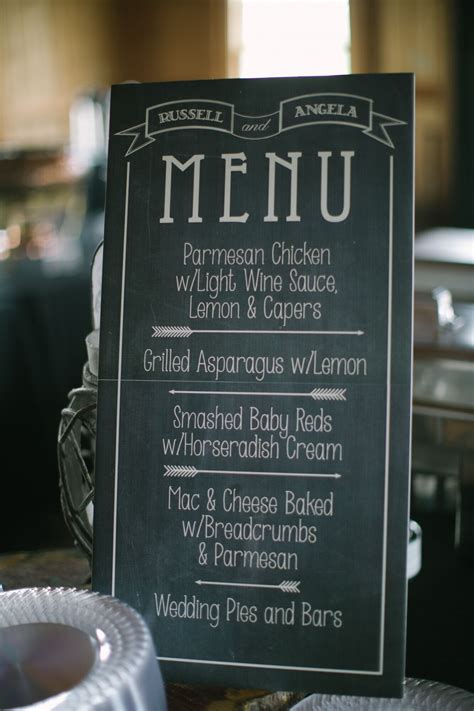 RUSSELL and ANGELA
MENU
Parmesan Chicken
w/Light Wine Sauce,
Lemon & Capers
Grilled Asparagus w/Lemon
Smashed Baby Reds
w/Horseradish Cream
Mac & Cheese Baked
w/Breadcrumbs
& Parmesan
Wedding Pies and Bars